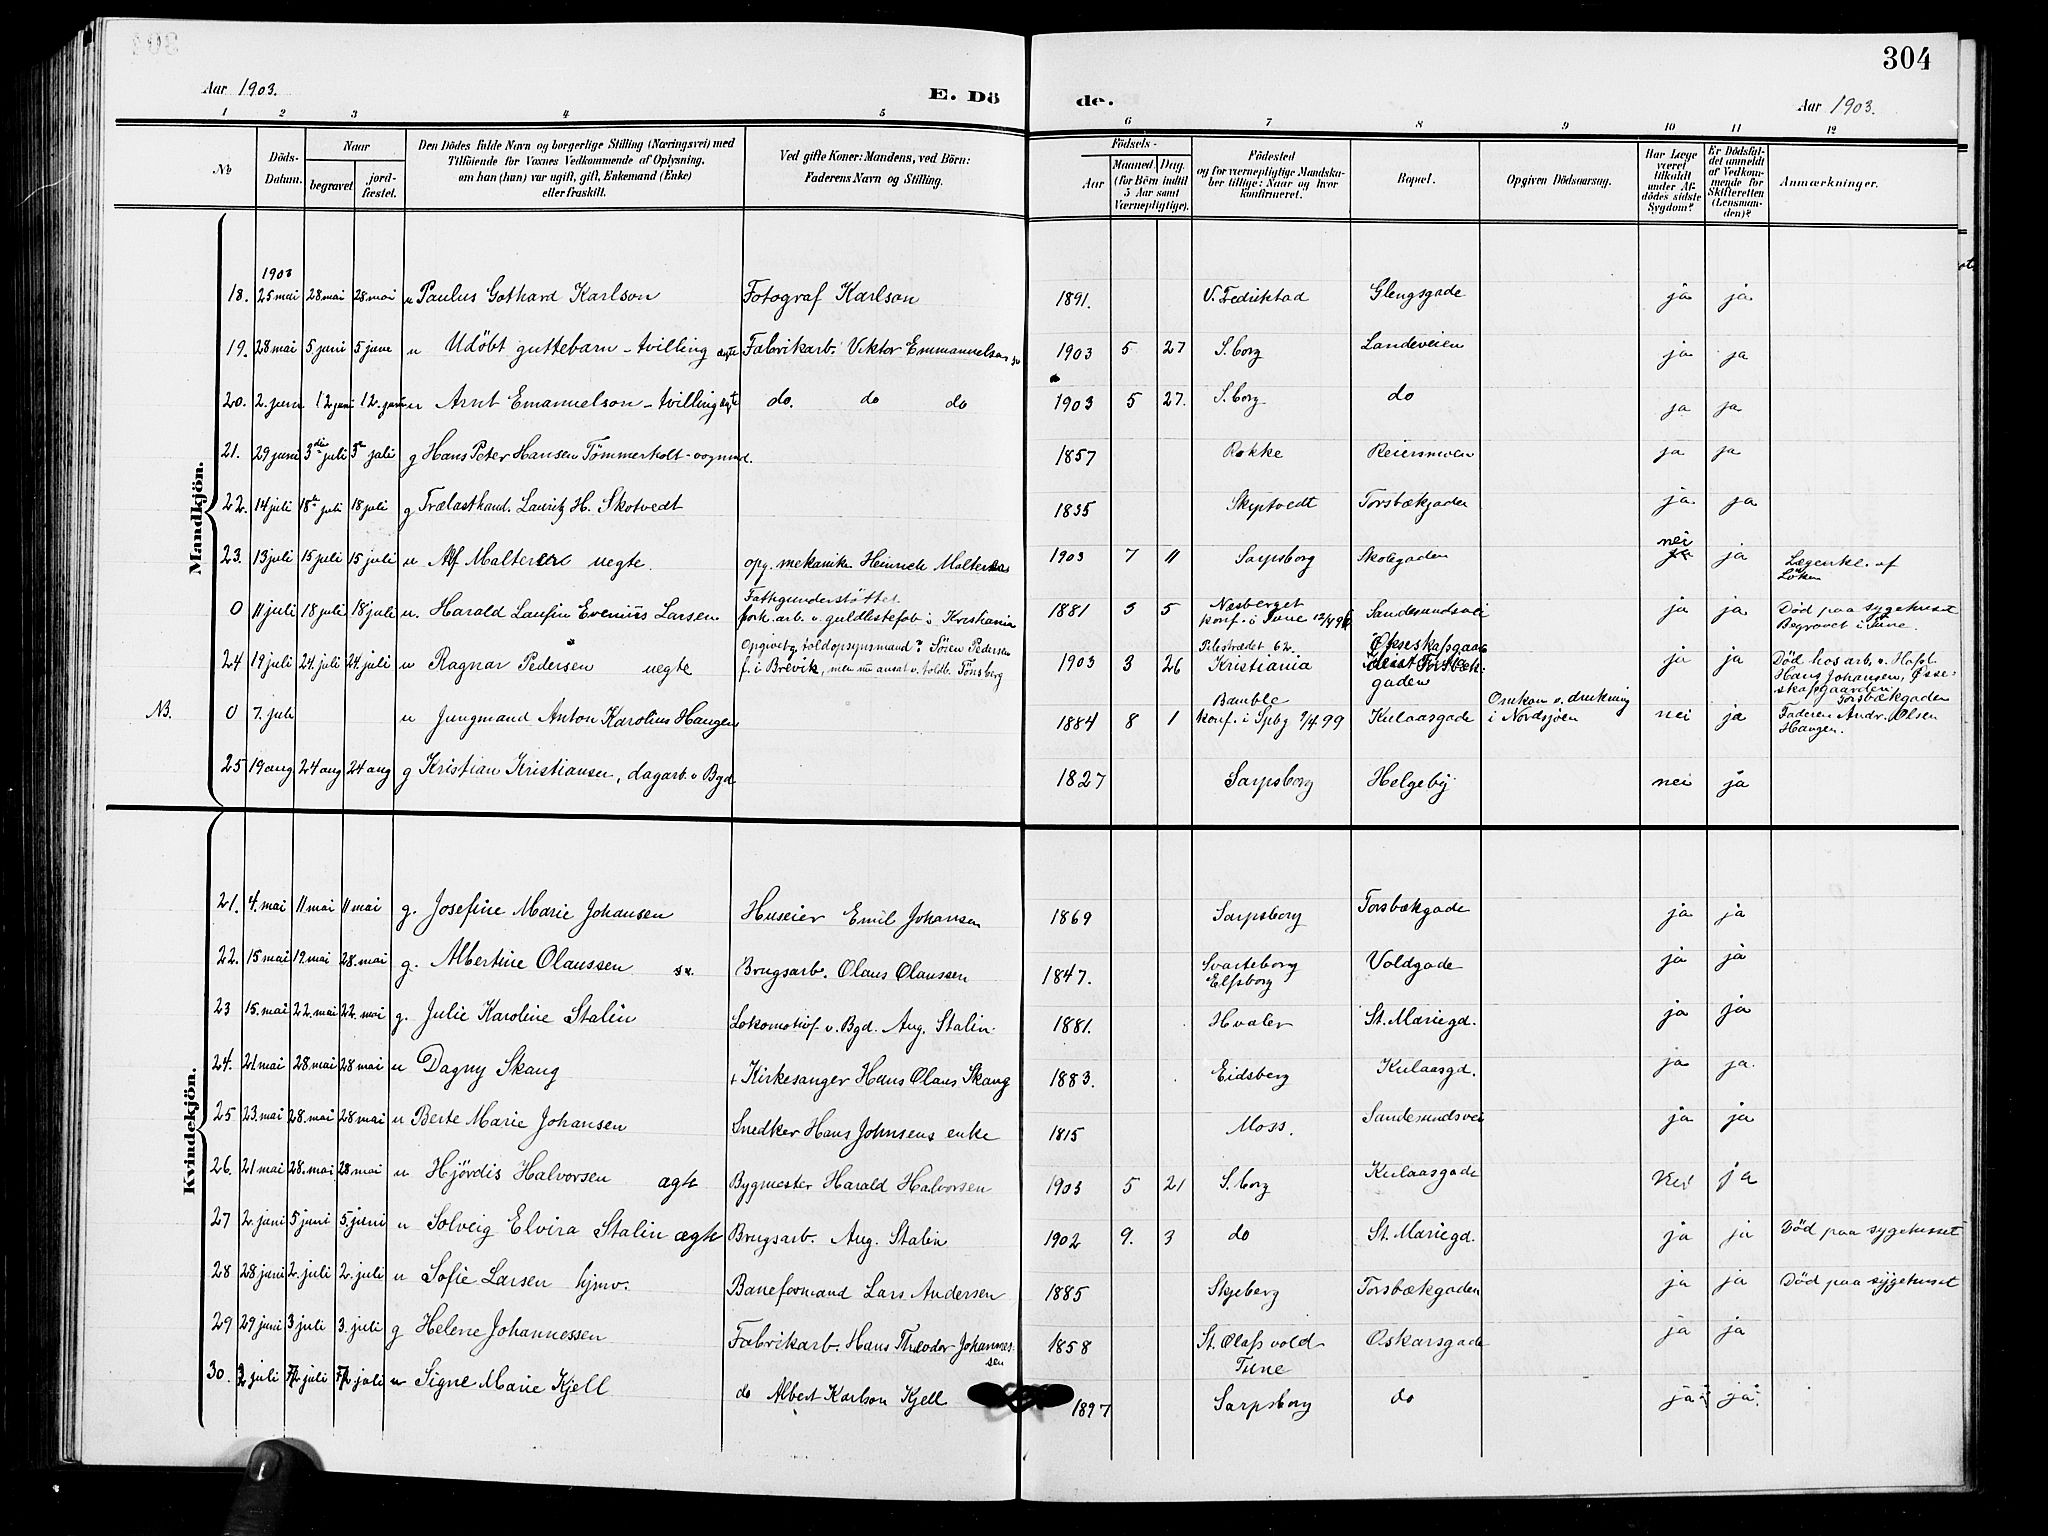 304
Aar 1903.
E. Dö de.
Aar 1903.
1 2 3 4 5 6 7 8 9 10 11 12
No
Döds-Datum.
Naar
begravet
jord-fæstet.
Den Dödes fulde Navn og borgerlige Stilling (Næringsvei) med
Tilföiende for Voxnes Vedkommende af Oplysning,
om han (hun) var ugift, gift, Enkemand (Enke)
eller fraskilt.
Ved gifte Koner: Mandens, ved Börn:
Faderens Navn og Stilling.
Födsels-
Aar
Maaned. Dag.
(for Börn indtil
5 Aar samt
Værnepligtige).
Födested
og for værnepligtige Mandska-
ber tillige: Naar og hvor
konfirmeret.
Bopæl.
Opgiven Dödsaarsag.
Har Læge
været
tilkaldt
under Af-
dödes sidste
Sygdom?
Er Dödsfal-
det anmeldt
af Vedkom-
mende for
Skifteretten
(Lensman-
den)?
Anmærkninger.
Mandkjön.
1903
18. 25 mai 28 mai 28 mai u Paulus Gothard Karlson Fotograf Karlson 1891. V. Fredrikstad Glengsgade ja ja
19. 28 mai 5 juni 5 june u Udöbt guttebarn - tvilling ægte Fabrikarb. Viktor Emmanuelson 1903 5 27 S.borg Landeveien ja ja
20. 2. juni 12 juni 12. juni u Arnt Emanuelson - tvilling ægte do. do do 1903 5 27. S.borg do ja ja
21. 29 juni 3die juli 3 juli g Hans Peter Hansen Tömmerholt - vognmd. 1857 Rokke Reiersmoen ja ja
22. 14 juli 18 juli 18 juli g Trælasthand. Lauritz H. Skotvedt 1835 Skiptvedt Torsbækgaden ja ja
23. 13 juli 15 juli 15 juli u Alf uegte. opg. mekaniker Heinrich 1903 7 11 Sarpsborg Skolegaden nei ja ja Lægerkl. af Löken
0 11 juli 18 juli 18 juli u. Harald Laufin Evenius Larsen Fattigunderstöttet fork. arb. v. guldlistefab. i Kristiania 1881 3 5 Næsberget konf. i Tune Sandesundsvei ja ja Död paa sygehuset Begravet i Tune.
24 19 juli 24. juli 24. juli u Ragnar Pedersen uegte Opgivet toldopsynsmand Sören Pedersen f. i Brevik, men nu ansat v. toldb. Tönsberg 1903 3 26 Pilestrædet 62. Kristiania ja ja Död hos arb. v. Hafsl. Hans Johansen, Torsbækgaden
NB. 0 7. juli u Jungmand Anton Karolius Haugen 1884 8 1 Bamble konf. i Spbg 9/4 99 Kulaasgade Omkom v. drukning i Nordsjöen nei ja Faderen Andr. Olsen Haugen.
25 19 aug 24 aug 24 aug g Kristian Kristiansen, dagarb. v Bgd 1827 Sarpsborg Helgeby nei ja
Kvindekjön.
21. 4. mai 11 mai 11 mai g. Josefine Marie Johansen Huseier Emil Johansen 1869 Sarpsborg Torsbækgade ja ja
22. 15 mai 19. mai 28. mai g. Albertine Olaussen sv. Brugsarb. Olaus Olaussen 1847. Svarteborg Elfsborg Voldgade ja ja
23 15. mai 22. mai 22. mai g. Julie Karoline Stalin Lokomotivf. v. Bgd. Aug. Stalin. 1881. Hvaler St. Mariegd. ja ja
24. 21 mai 28. mai 28 mai u Dagny Skaug + Kirkesanger Hans Olaus Skaug 1883. Eidsberg Kulaasgd. ja ja.
25 23. mai 28. mai 28 mai u Berte Marie Johansen Snedker Hans Johnsens enke 1815 Moss. Sandesundsvei ja ja
26. 21 mai 28. mai 28 mai u Hjördis Halvorsen ægte Bygmester Harald Halvorsen 1903 5 21 S.borg Kulaasgade Nei ja
27 2. juni 5 juni 5. juni u Solveig Elvira Stalin ægte Brugsarb. Aug. Stalin 1902 9. 3 do St. Mariegd. ja ja Död paa sygehuset
28 28 juni 2. juli 2. juli u Sofie Larsen hjmv. Baneformand Lars Andersen 1885 Skjeberg Torsbækgaden ja ja Död paa sygehuset
29 29 juni 3 juli 3. juli g Helene Johannessen Fabrikarb. Hans Theodor Johannessen 1858 St. Olafs vold Tune Oskarsgade ja ja
30. 2 juli 7 juli 7 juli u Signe Marie Kjell do Albert Karlson Kjell 1897 Sarpsborg do ja ja